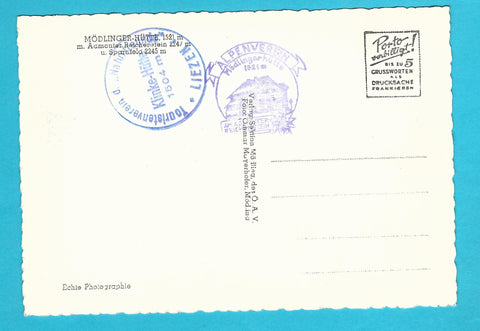 MÖDLINGER-HÜTTE, 1521 m
m. Admonter Reichenstein 2247 m
u. Sparafeld 2245 m
Touristenverein d. „Naturfreunde“
LIEZEN
Klinke-Hütte
1504 m
ALPENVEREIN
Mödlingerhütte
1521m
Porto
verbilligt!
BIS ZU 5
GRUSSWORTEN
ALS
DRUCKSACHE
FRANKIEREN
Verlag Sektion Mödling, des Ö. A. V.
Foto: Othmar Mayerhofer, Mödling
Echte Photographie